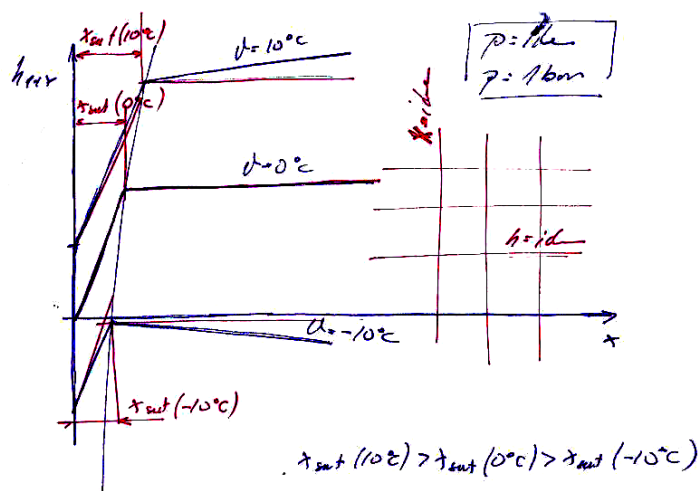 x sat (10°C)
ϑ=10°C
p=idem
p=1bar
h 1+x
x sat (0°C)
x=idem
ϑ=0°C
h=idem
ϑ=-10°C
x
x sat (-10°C)
x sat (10°C) > x sat (0°C) > x sat (-10°C)